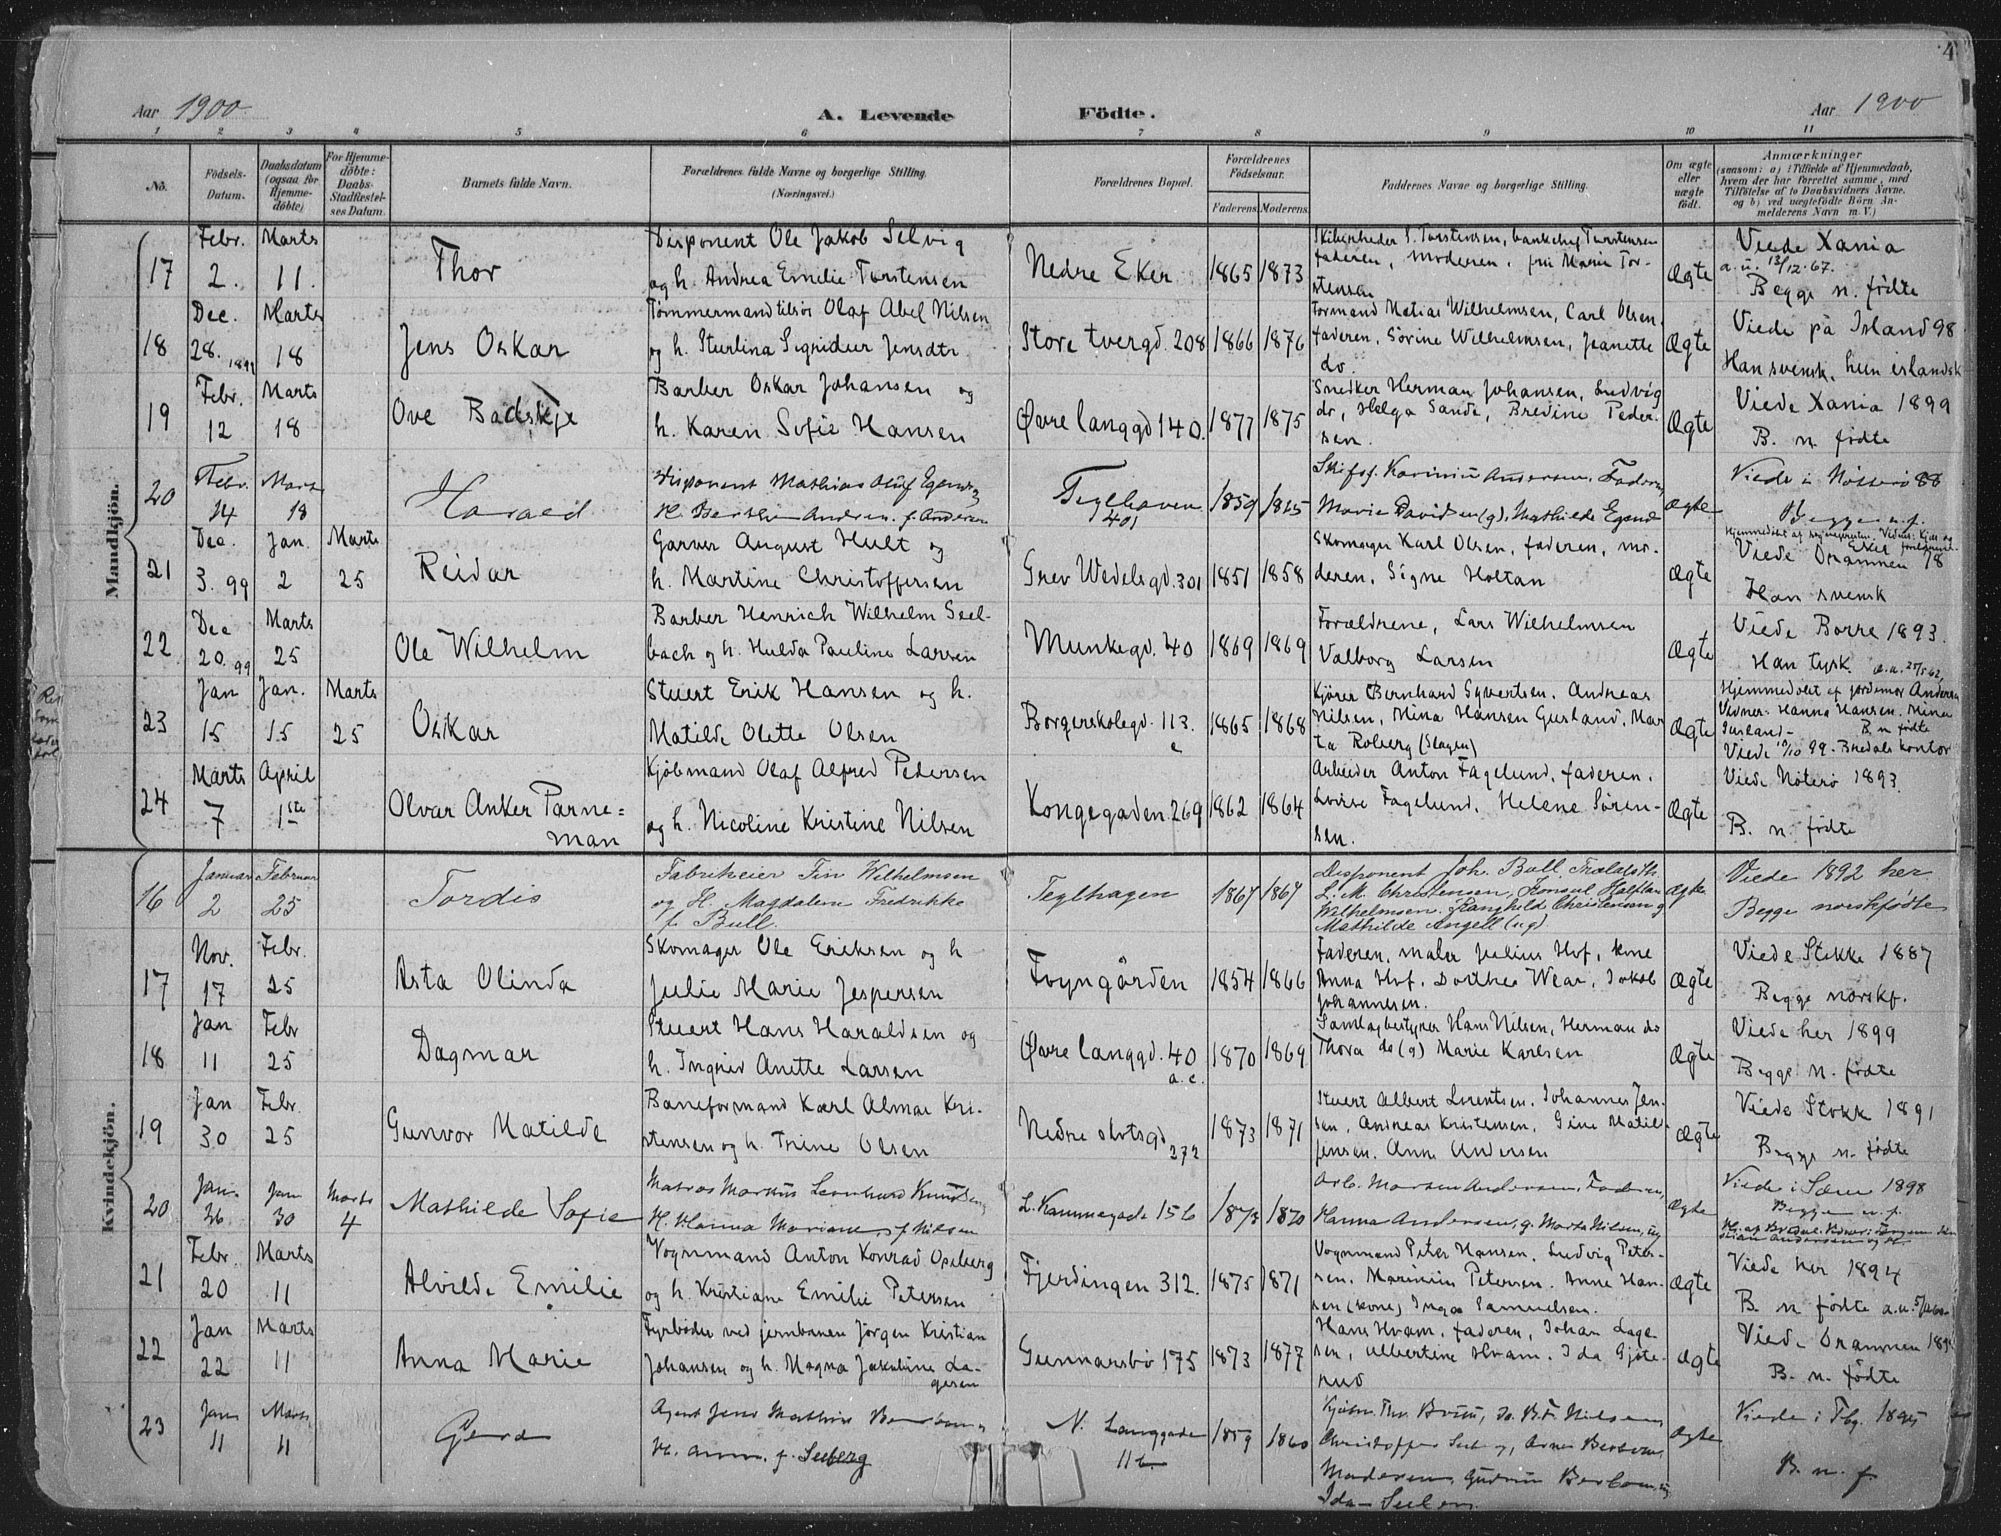 4
Aar 1900. A. Levende Födte. Aar 1900
1 2 3 4 5 6 7 8 9 10 11
No. Födsels-Datum. Daabsdatum (ogsaa for Hjemme-döbte) For Hjemme-döbte: Daabs-Stadfæstel-ses Datum. Barnets fulde Navn. Forældrenes fulde Navne og borgerlige Stilling. (Næringsvei.) Forældrenes Bopæl. Forældrenes Födselsaar. Faderens. Moderens. Faddernes Navne og borgerlige Stilling. Om ægte eller uægte födt. Anmærkninger
(saasom: a) i Tilfælde af Hjemmedaab, hvem der har forrettet samme, med Tilföielse af to Daabsvidners Navne. og b) ved uægtefödte Börn An-melderens Navn m. V.)
Mandkjön.
Febr. Marts Disponent Ole Jakob Selvig Skibsreder S. Torstensen, bankchef Torstensen Viede Xania
17 2. 11. Thor og h. Andrea Emelie Torstensen Nedre Eker 1865 1873 faderen, moderen, frk Marie Tor- Ægte a.u. 13/12.67.
stensen Begge n. födte
Dec. Marts Tömmermand Olaf Abel Nilsen Formand Matias Wilhelmsen, Carl Olsen, Viede på Island 98
18 28. 1899 18 Jens Oskar og h. Sturlina Sigridur Jensdtr Store tvergd. 208 1866 1876 faderen, Sörine Wilhelmsen, Jeanette Ægte
do. Han svensk, hun islandsk
Febr. Marts Barber Oskar Johansen og Snedker Herman Johansen, Ludvig Viede Xania 1899
19 12 18 Ove h. Karen Sofie Hansen Øvre langgd 140. 1877 1875 do, Helga Sande, Bredine Peder- Ægte
sen. B. n. födte
Febr. Marts Disponent Mathias Oluf Andersen, Faderen, Viede i Nötterö 88
20 14 18 Harald H. f. Andersen 401 1859 1865 Marie Davidsen (g), Mathilde Ægte
Begge n. f.
Dec. Jan. Marts Garver August Hult og Skomager Karl Olsen, faderen, mo- Viede Drammen 78
21 3. 99 2 25 Reidar h. Martine Christoffersen Grev Wedelsgd. 301 1851 1858 deren, Signe Holtan Ægte Han svensk
Dec Marts Barber Henrich Wilhelm Seel- Forældrene, Lars Wilhelmsen Viede Borre 1893.
22 20. 99 25 Ole Wilhelm bach og h. Hulda Pauline Larsen Munkegd. 40 1869 1869 Valborg Larsen Ægte Han tysk.
Jan Jan. Marts Stuert Erik Hansen og h. Kjörer Bernhard Syvertsen, Andreas Hjemmedöbt af jordemor Andersen
23 15 15 25 Oskar Matilde Olette Olsen Borgerskolegd. 113. 1865 1868 Nilsen, Mina Hansen Gusland, Mar Ægte Vidner: Hanna Hansen. Mina
ta Roberg (Slagen) Gusland - B. n födte
Viede 10/10 99. Bredals kontor
Marts April Kjöbmand Olaf Alfred Pedersen Arbeider Anton Fagelund, faderen, Viede Nöterö 1893.
24 7 1ste Olvar Anker Parne= og h. Nicoline Kristine Nilsen Kongegaden 269 1862 1864 Lovise Fagelund, Helene Sören- Ægte
man sen. B. n. födte
Kvindekjön.
Januar Februar Fabrikeier Finn Wilhelmsen Disponent Joh. Bull, Viede 1892 her
16 2 25 Tordis og H. Magdalene Fredrikke Teglhagen 1867 1867 L. M. Christensen, Konsul Halfdan Ægte
f. Bull. Wilhelmsen. Ranghild Christensen g Begge norskfödte
Mathilde Angell (ug)
Nov. Febr. Skomager Ole Eriksen og h Faderen, maler Julius Hof, kone Viede Stokke 1887
17 17 25 Asta Olinda Julie Marie Jespersen Foyngården 1854 1866 Anna Hof. Dorthea Wear, Jakob Ægte
Johannesen. Begge norskf.
Jan Febr Stuert Hans Haraldsen og Samlagbestyrer Hans Nilsen, Herman do Viede her 1899
18 11 25 Dagmar h. Ingrid Anette Larsen Øvre langgd. 40 1870 1869 Thora do (g) Marie Karlsen Ægte
a.c. Begge n. födte
Jan Febr Baneformand Karl Almar Kri- Stuert Albert Lorentsen, Johannes Jen- Viede Stokk 1891
19 30 25 Gunvor Matilde stensen og h. Trine Olsen Nedre slotsgd 272 1873 1871 sen, Andreas Kristensen, Gine Matil- Ægte
Jensen. Anne Andersen Begge n. födte
Jan. Jan Marts Matros Markus Leonhard Knudsen Arb. Andersen, Faderen, Viede i Sæm 1898
20 26 30 4 Mathilde Sofie H. Hanna Mariane f. Nilsen L. Kammegade 15 b 1873 1870 Hanna Andersen, g. Nilsen, ug Ægte Begge n. f.
Febr. Marts Vognmand Anton Konrad Oseberg Vognmand Peter Hansen, Ludvig Peter- Viede her 1894
21 20 11 Alvilde Emilie og h. Kristiane Emilie Petersen Fjerdingen 312. 1875 1871 sen. Petersen. Anne Han- Ægte
sen (kone) Inga Samuelsen. B. n födte
Jan Marts Fyrböder ved jernbanen Jörgen Kristian Hans Hvam, faderen, Johan Lage Viede Drammen
22 22 11 Anna Marie Johansen og h. Magna Jakobine La- Gunnarsbö 175 1873 1877 sen, Albertine Hvam. Ida Gjöte- Ægte
gesen rud B. n. födte
Jan Marts Agent Jens Mathias Nilsen Viede i Tbg. 1895
23 11 11 Gerd H. f. Seeberg N. Langgade 1859 1860 Christoffer Ægte
11 b Moderen, Gudrun B. n. f
Ida